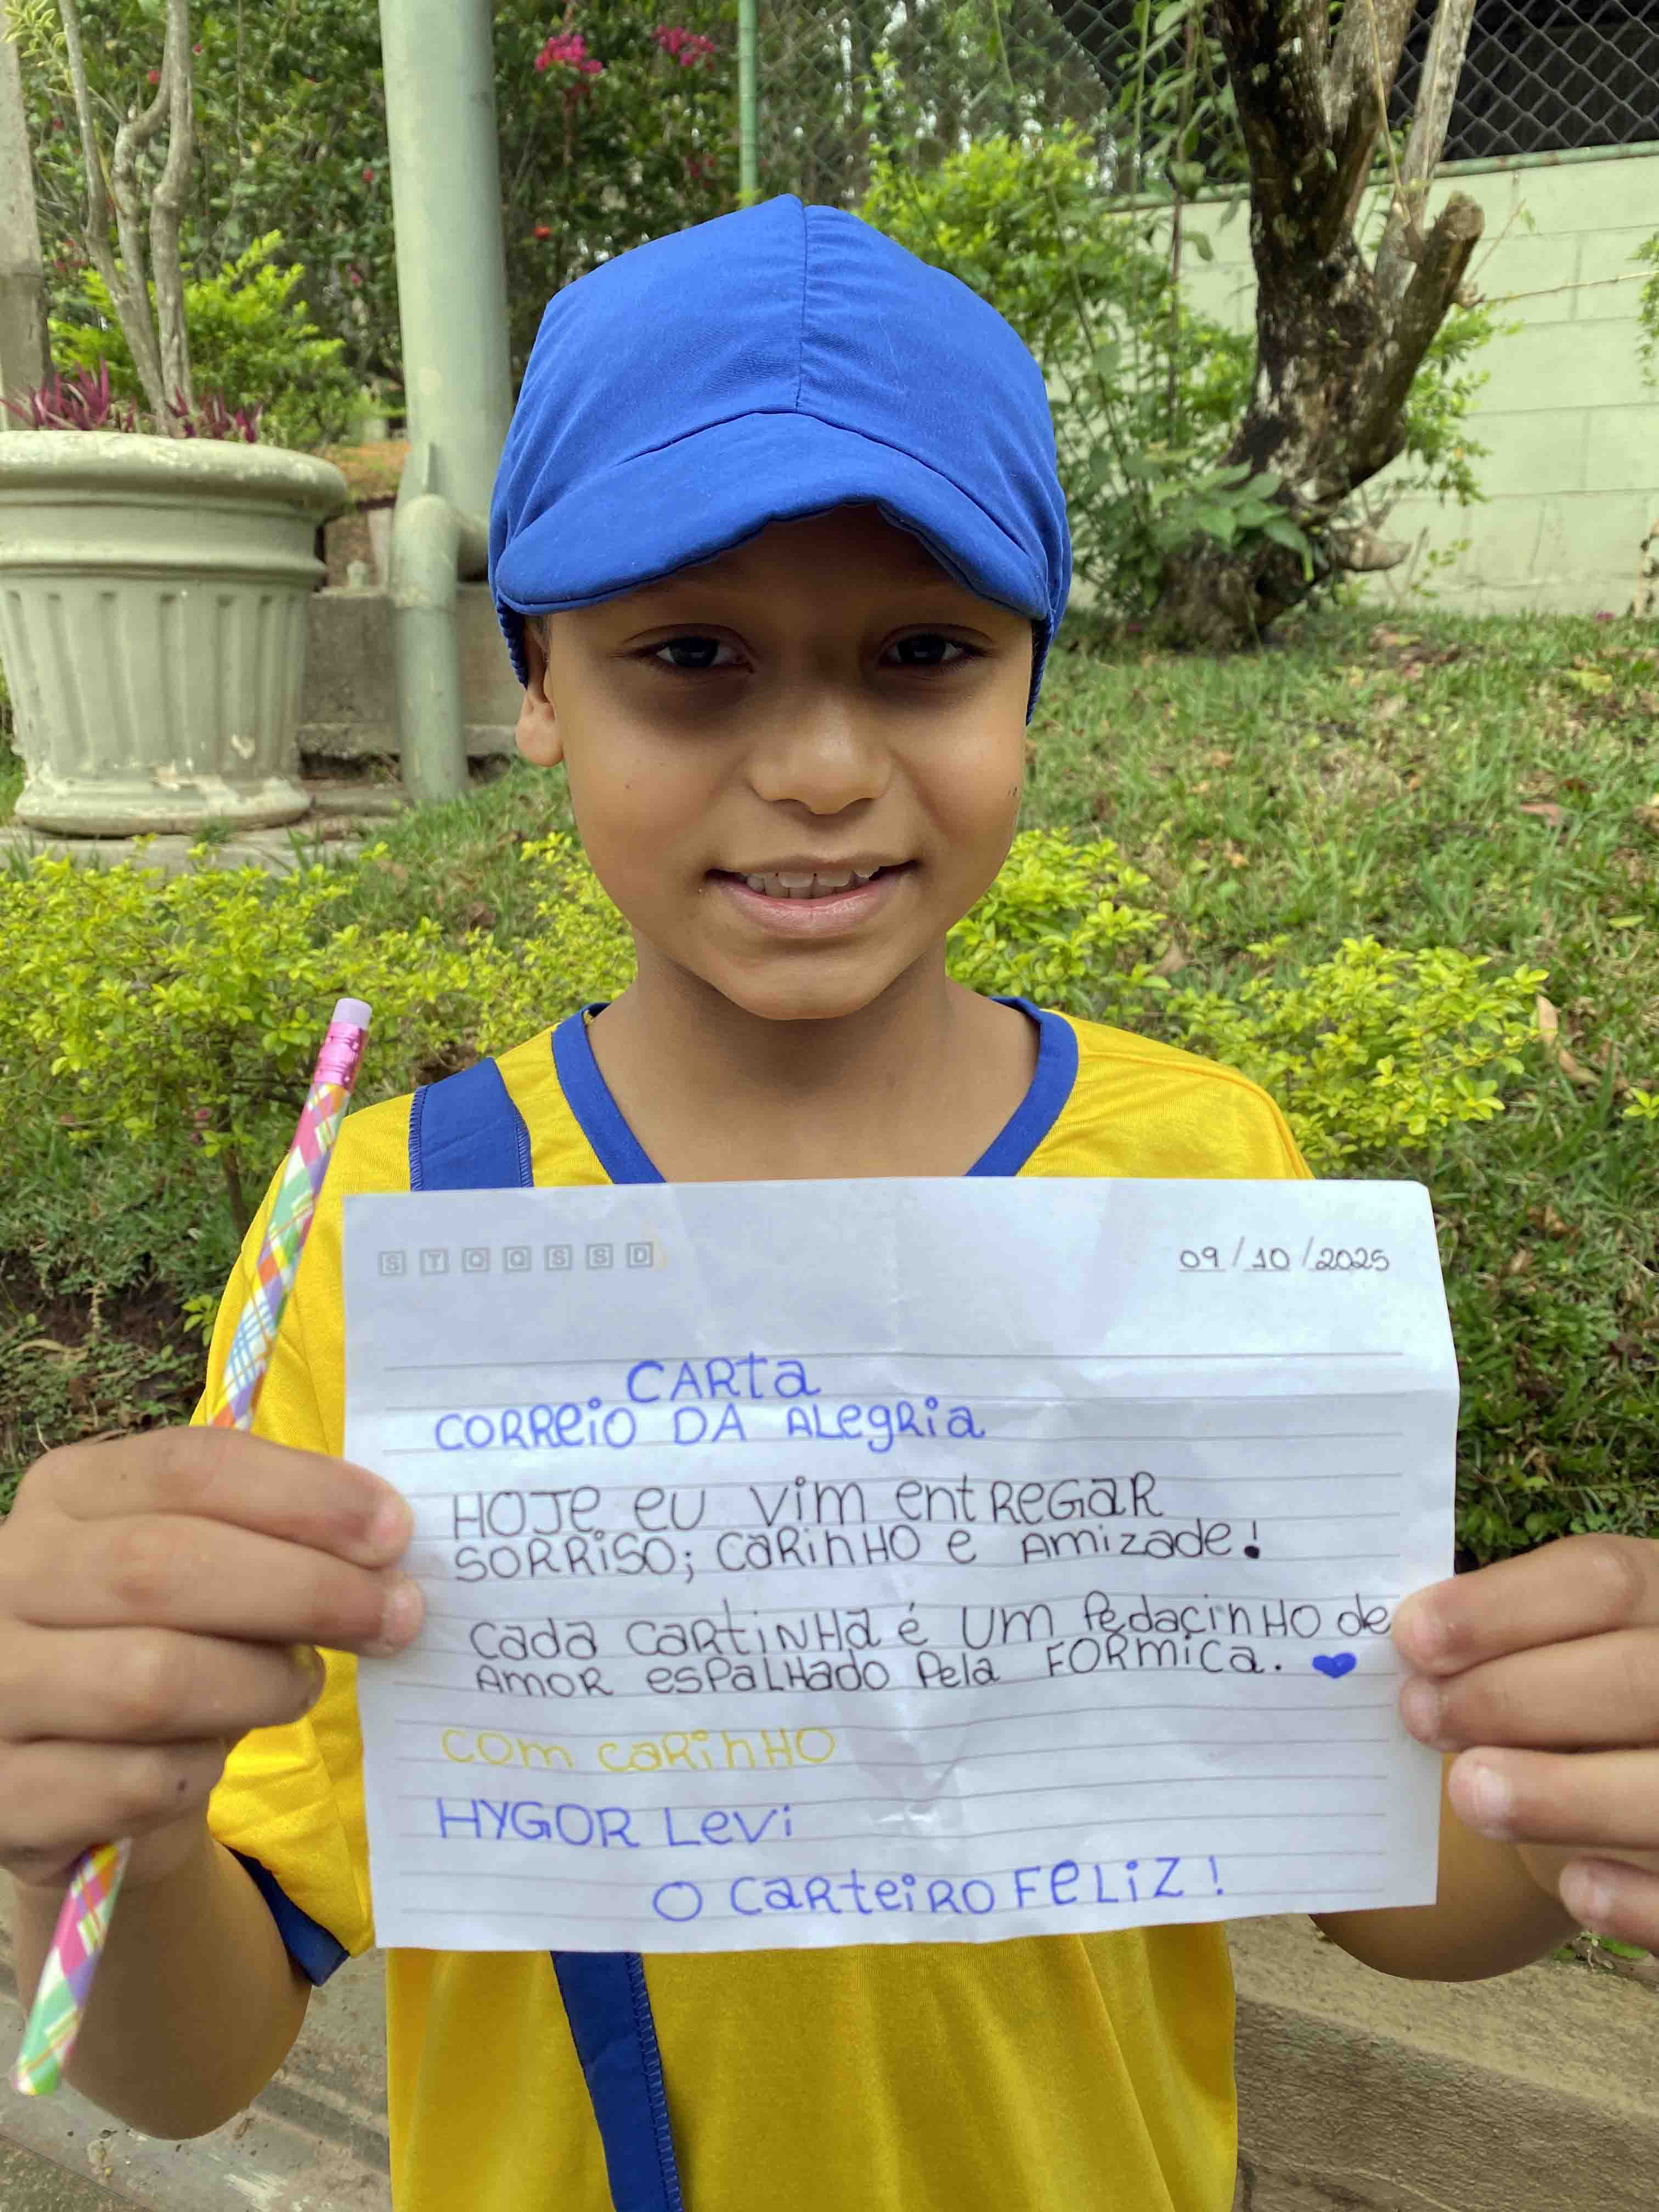 S T Q Q S S D
09/10/2025
CARTA
CORREIO DA ALEGRIA
HOJE EU VIM ENTREGAR
SORRISO; CARINHO E AMIZADE!
CADA CARTINHA É UM PEDACINHO DE
AMOR ESPALHADO PELA FORMICA.
COM CARINHO
HYGOR LEVI
O CARTEIRO FELIZ!